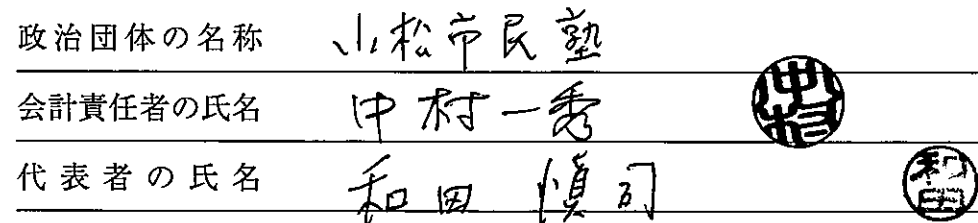 政治団体の名称 小松市民塾
会計責任者の氏名 中村一秀 中村
代表者の氏名 和田慎司 和田